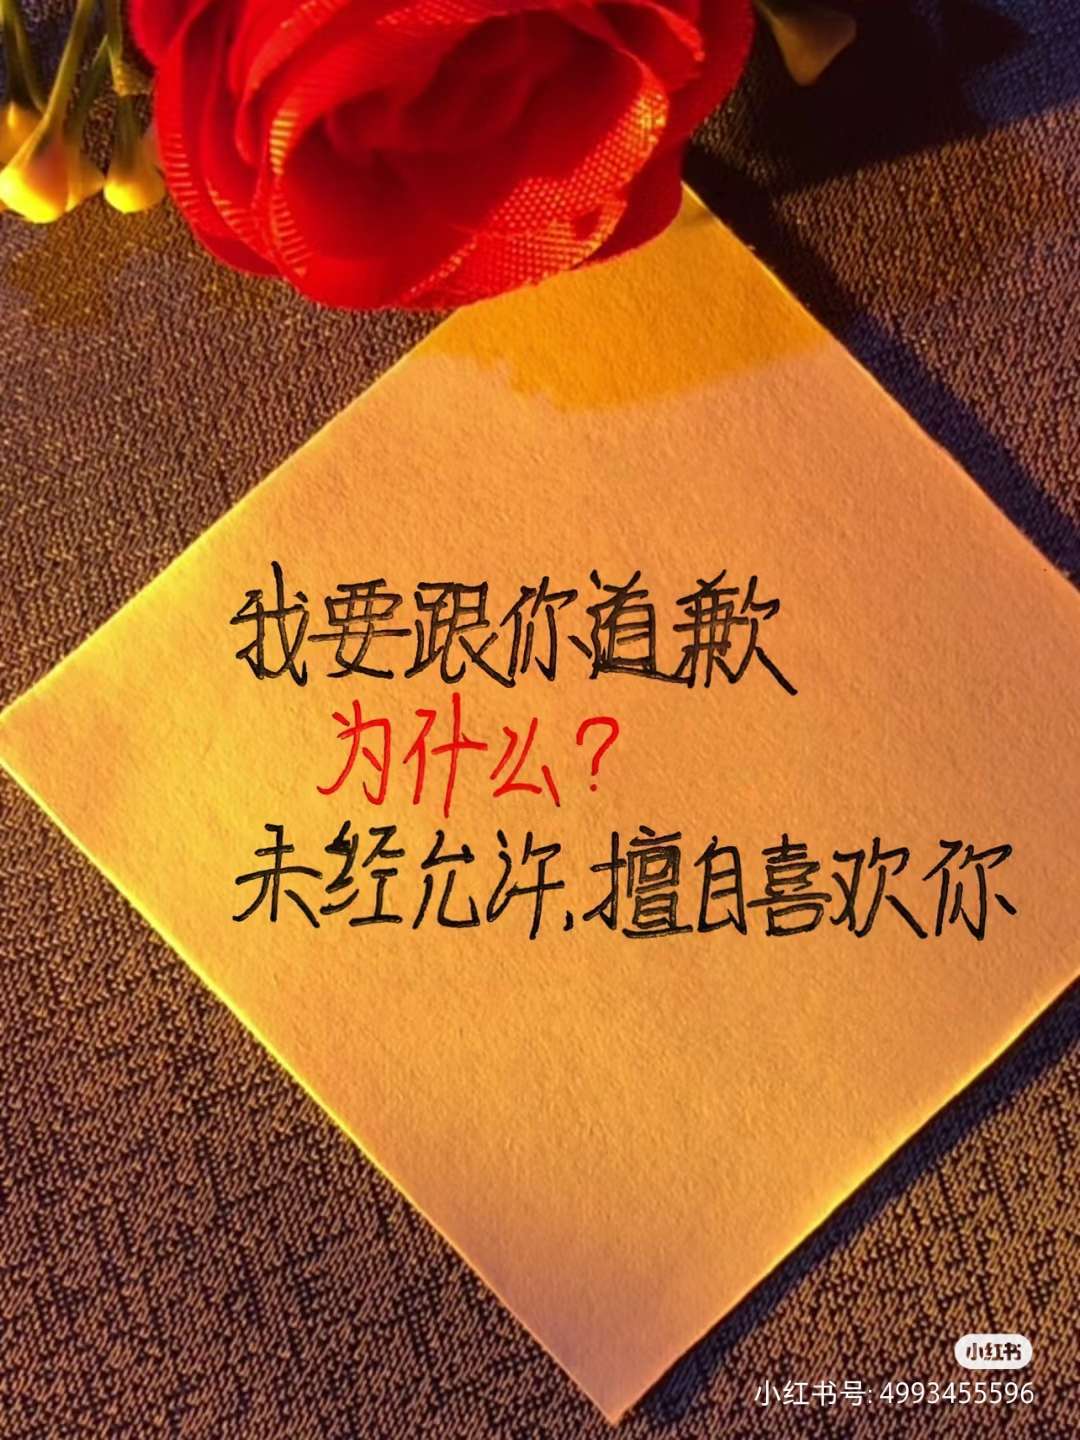 我要跟你道歉
为什么?
未经允许,擅自喜欢你
小红书
小红书号:4993455596